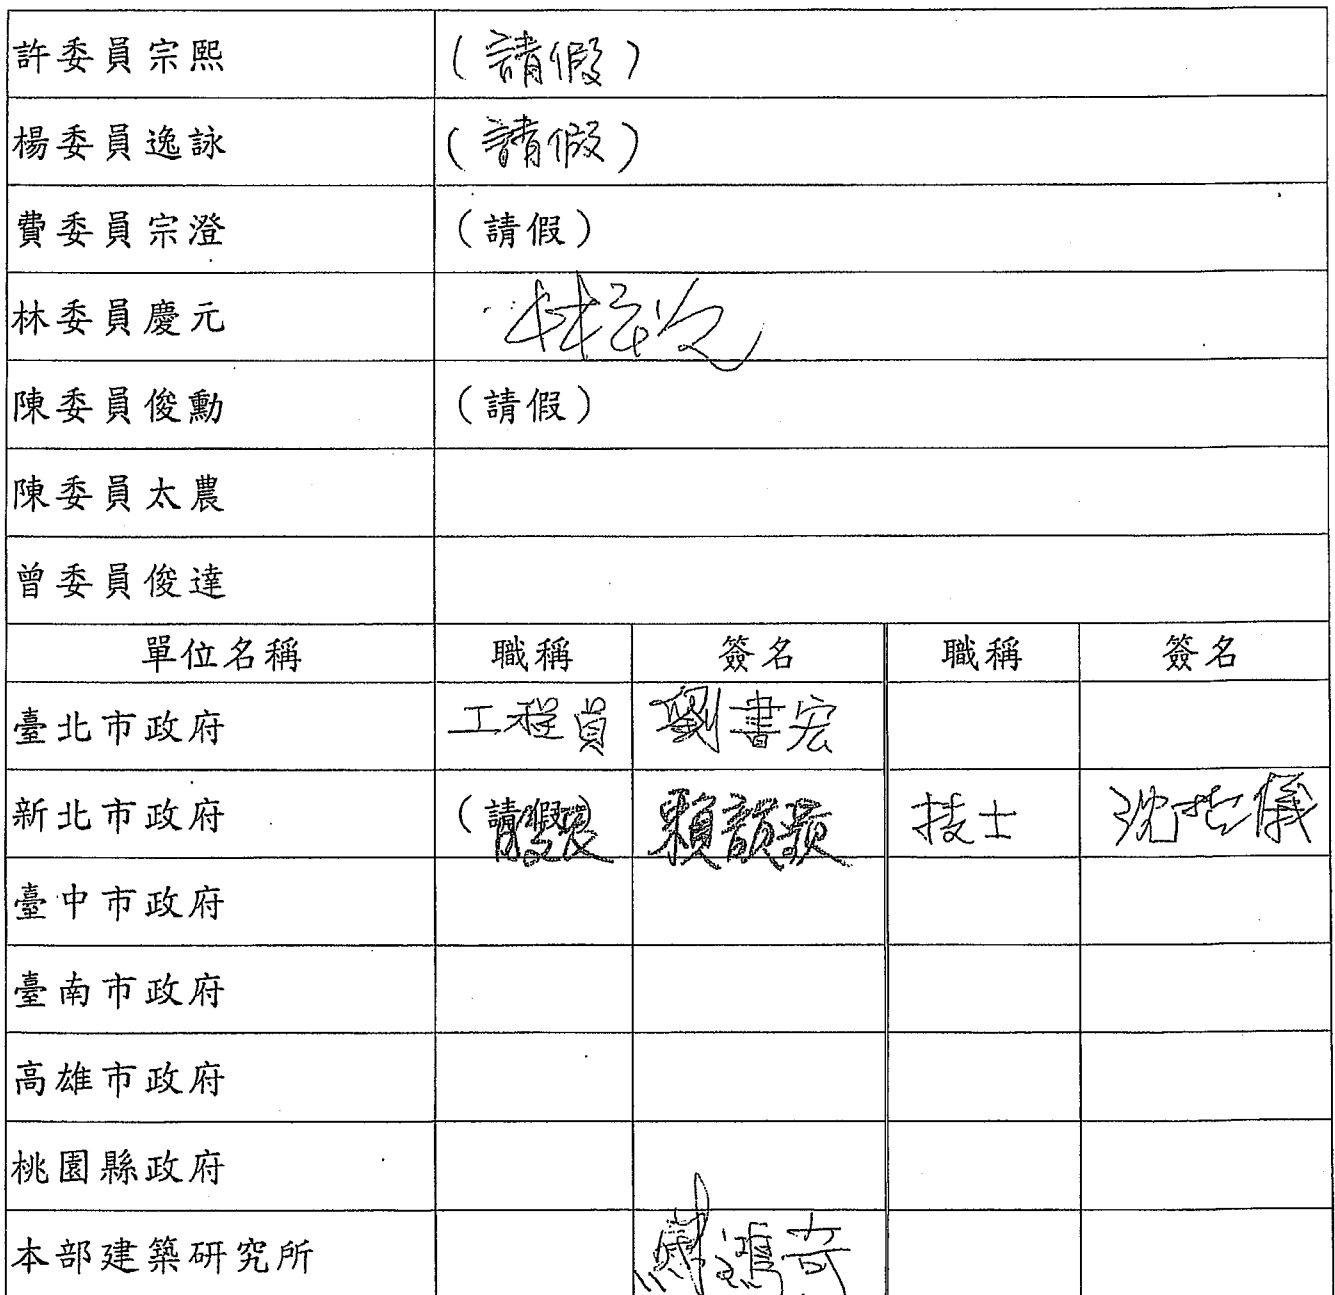 許委員宗熙 (請假)
楊委員逸詠 (請假)
費委員宗澄 (請假)
林委員慶元
陳委員俊勳 (請假)
陳委員太農
曾委員俊達
單位名稱 職稱 簽名 職稱 簽名
臺北市政府 工程員 劉書宏
新北市政府 (請假) 技士
臺中市政府
臺南市政府
高雄市政府
桃園縣政府
本部建築研究所